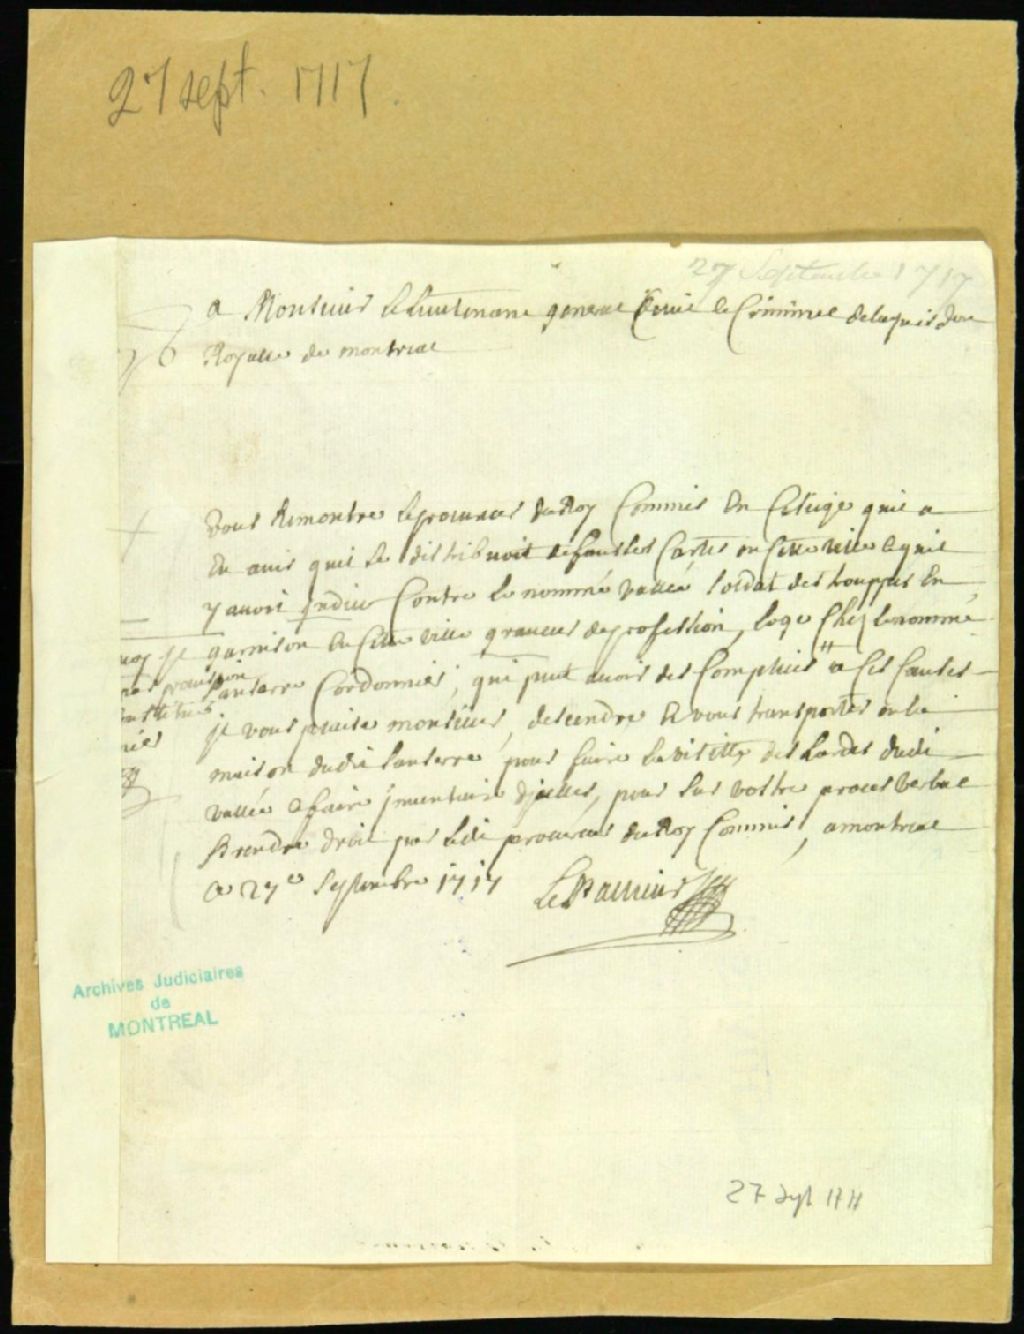 27 sept. 1717.
27 Septembre 1717
A Monsieur le lieutenant general Civil & Criminel
Royalle de montreal
Vous Remontre le procureur du Roy Commis en ce siege qu'il a
Eu avis qu'il se distribuoit de fausses Cartes en cette ville & qu'il
y auoit Indice Contre le nommé vallée soldat des trouppes En
garnison En cette ville graueur de profession, logé chez le nommé
Lanserre Cordonnier, qui peut auoir des Complices " a Ces Causes
il vous plaise monsieur, descendre & vous transporter en la
maison dudit Lanserre pour faire la visitte des hardes dudit
vallée & faire jnuentaire d'jcelles, pour sur vostre proces verbal
prendre droit par ledit procureur du Roy Commis, a montreal
ce 27e Septembre 1717
Archives Judiciaires
de
MONTREAL
27 Sept 1717